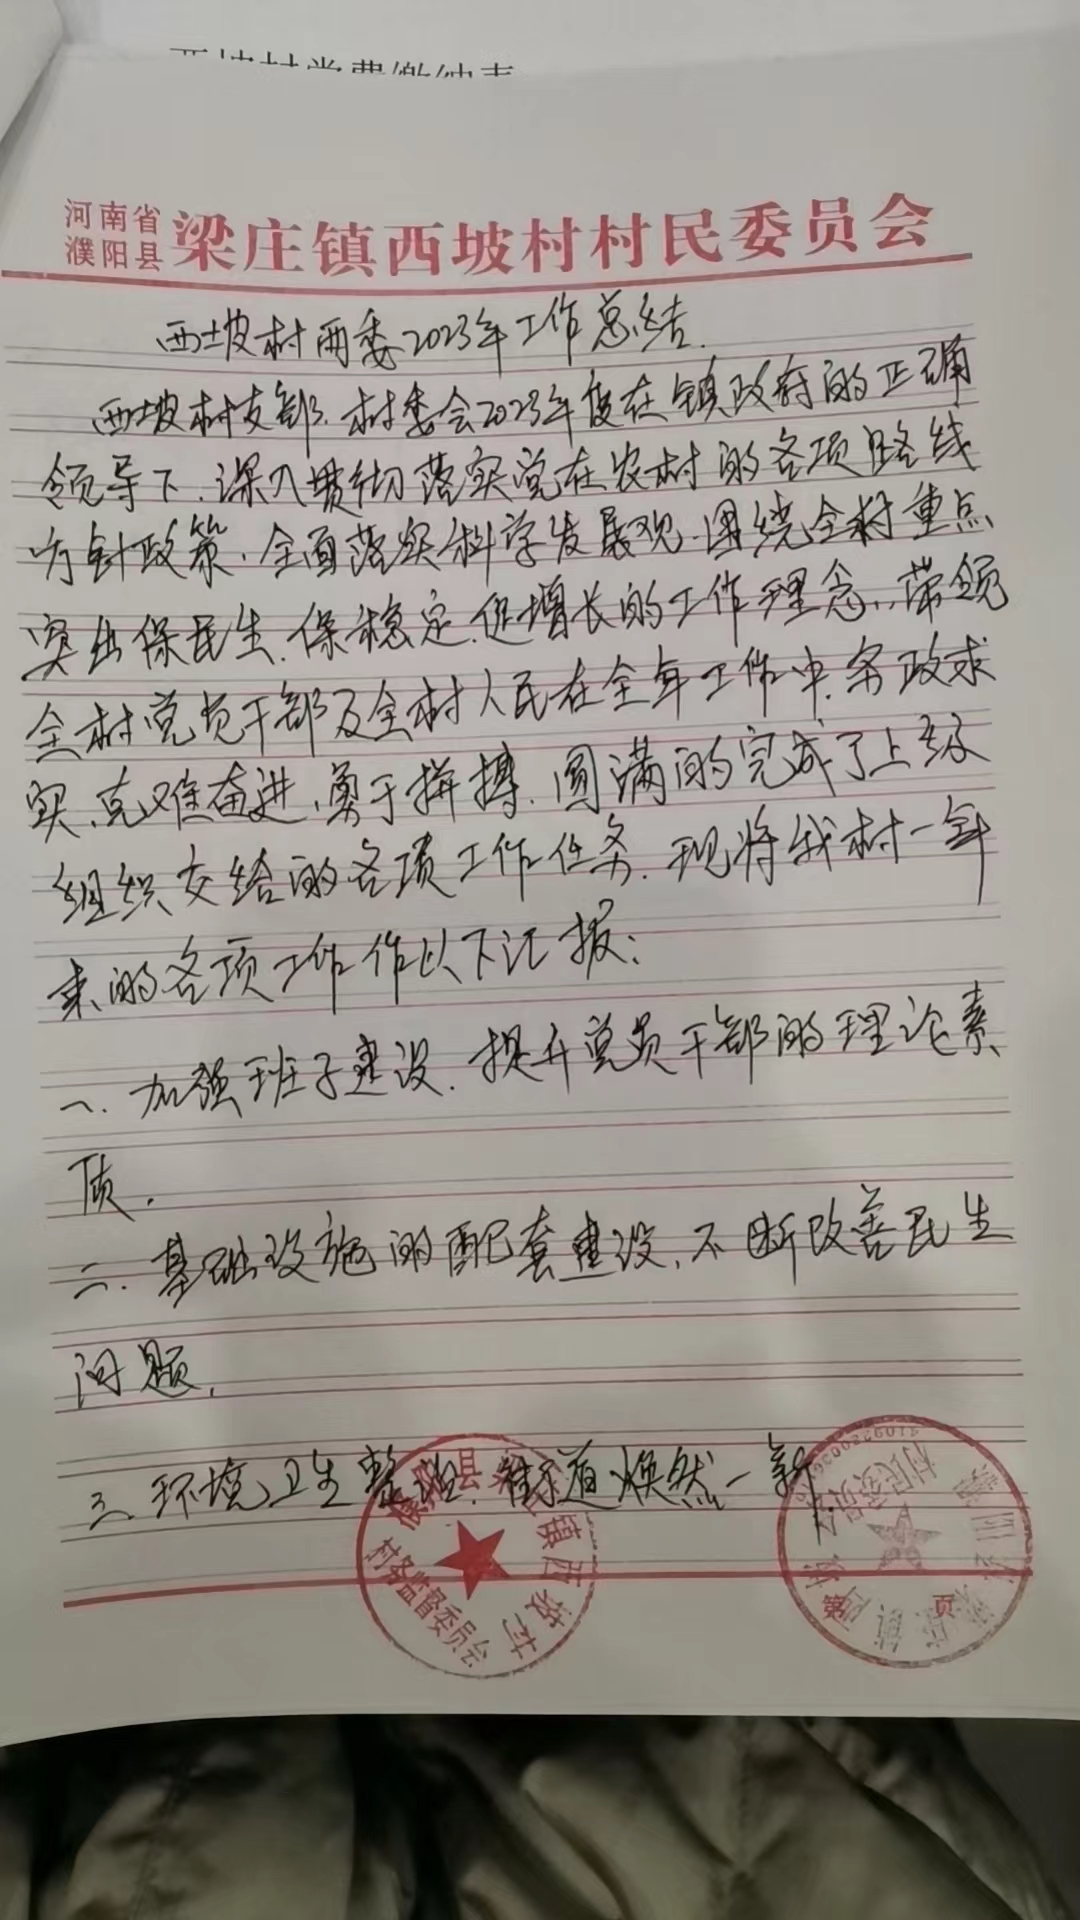 西坡村党费缴纳表
河南省
濮阳县
梁庄镇西坡村村民委员会
西坡村两委2023年工作总结.
西坡村支部、村委会2023年度在镇政府的正确
领导下、深入贯彻落实党在农村的各项路线
方针政策、全面落实科学发展观、围绕全村重点
突出保民生、保稳定、促增长的工作理念、带领
全村党员干部及全村人民在全年工作中、务政求
实、克难奋进、勇于拼搏、圆满的完成了上级
组织交给的各项工作任务、现将我村一年
来的各项工作作以下汇报:
一、加强班子建设、提升党员干部的理论素
质.
二、基础设施的配套建设、不断改善民生
问题.
三、环境卫生整理、街道焕然一新
濮阳县梁庄镇西坡村
村务监督委员会
濮阳县梁庄镇西坡
村民委员会
第 页